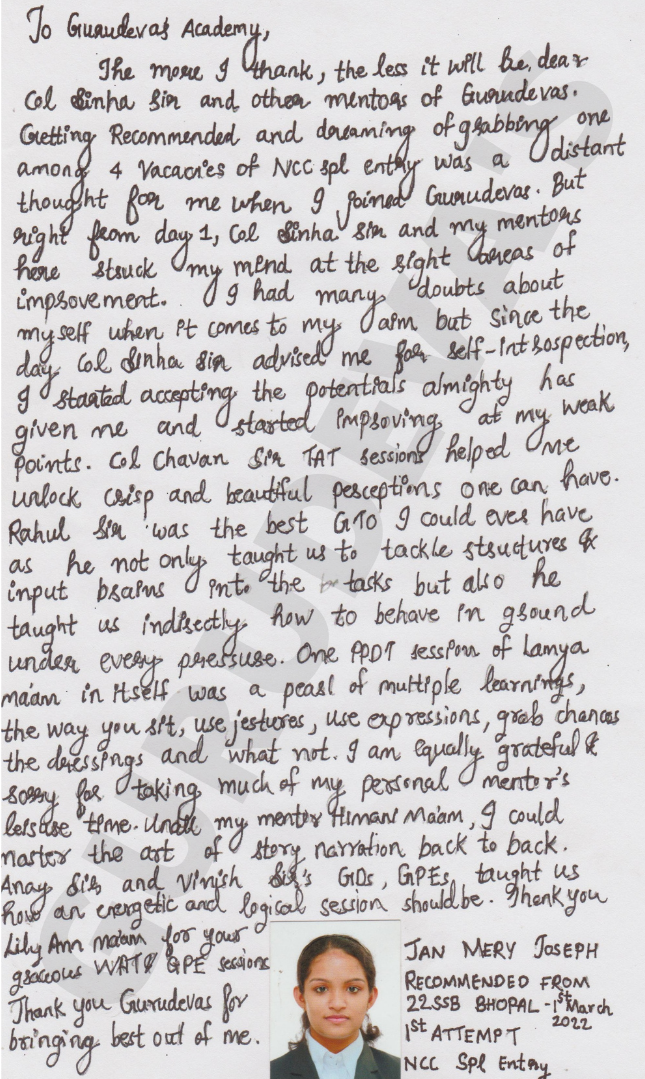 To Gurudevas Academy,
The more I thank, the less it will be, dear
Col Sinha Sir and other mentors of Gurudevas.
Getting Recommended and dreaming of grabbing one
among 4 Vacacies of NCC spl entry was a distant
thought for me when I joined Gurudevas. But
right from day 1, Col Sinha Sir and my mentors
here struck my mind at the right areas of
improvement. I had many doubts about
myself when it comes to my aim but since the
day Col Sinha Sir advised me for self-introspection,
I started accepting the potentials almighty has
given me and started improving at my weak
points. Col Chavan Sir TAT sessions helped me
unlock crisp and beautiful perceptions one can have.
Rahul Sir was the best GTO I could ever have
as he not only taught us to tackle structures &
input brains into the tasks but also he
taught us indirectly how to behave in ground
under every pressure. One PPDT session of Lamya
ma'am in itself was a pearl of multiple learnings,
the way you sit, use jestures, use expressions, grab chances
the dressings and what not. I am equally grateful &
sorry for taking much of my personal mentor's
leisure time. Until my mentor Himani Ma'am, I could
master the art of story narration back to back.
Anay Sir and Vinish Sir's GDs, GPEs, taught us
how an energetic and logical session should be. Thank you
Lily Ann ma'am for your
graceous WAT & GPE sessions
Thank you Gurudevas for
bringing best out of me.
JAN MERY JOSEPH
RECOMMENDED FROM
22SSB BHOPAL - 1st March
2022
1st ATTEMPT
NCC Spl Entry
GURUDEVA'S